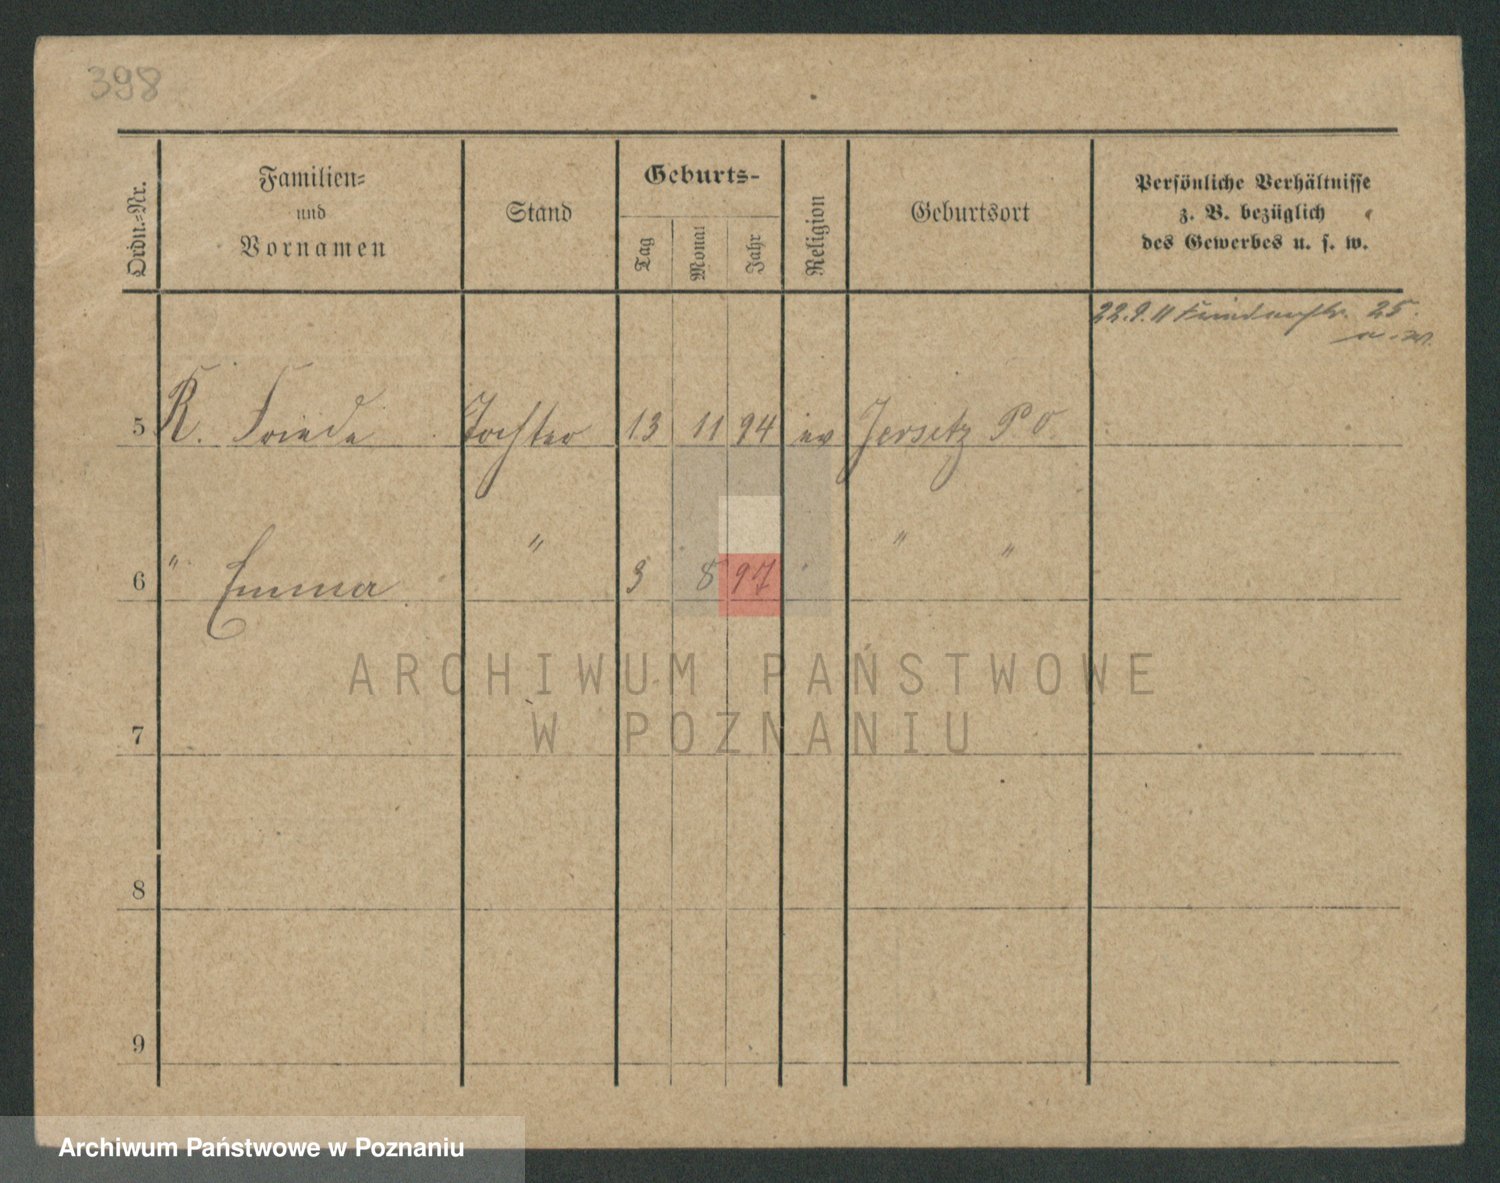 398
Ordn.-Nr.
Familien-
und
Vornamen
Stand
Geburts-
Tag
Monat
Jahr
Religion
Geburtsort
Persönliche Verhältnisse
z. B. bezüglich
des Gewerbes u. s. w.
22.9.11 25.
5 K. Friede Tochter 13 11 94 ev Jersitz P. O.
6 " Emma " 3 8 97 " "
7
8
9
ARCHIWUM PAŃSTWOWE
W POZNANIU
Archiwum Państwowe w Poznaniu